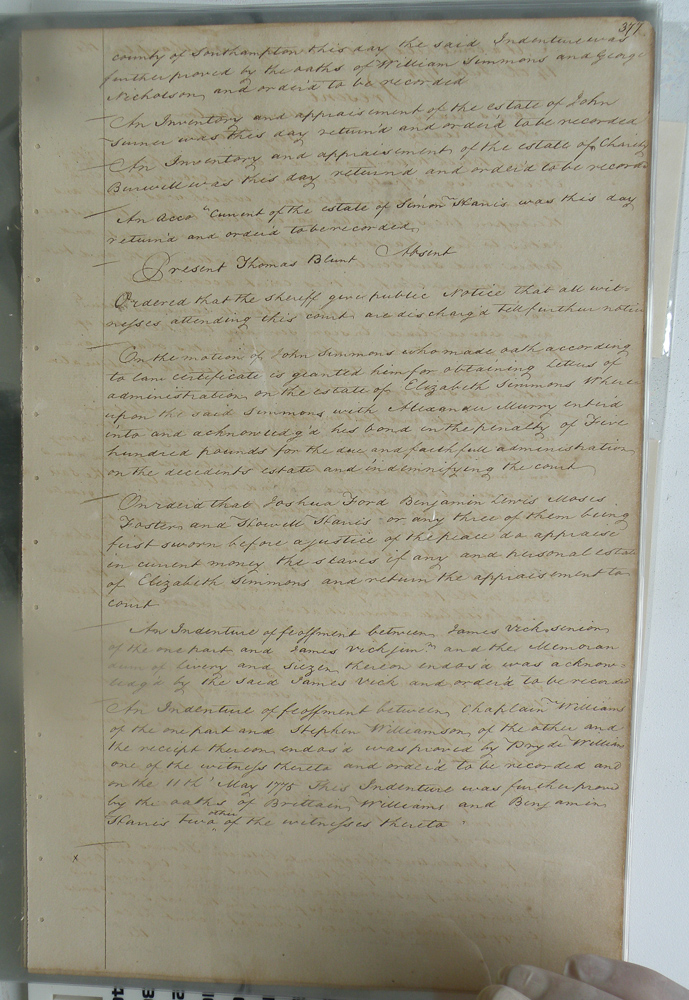 377
county of Southampton this day the said Indenture was
further proved by the oaths of William Simmons and George
Nicholson and order'd to be recorded
An Inventory and appraisement of the estate of John
Turner was this day return'd and order'd to be recorded
An Inventory and appraisement of the estate of Charity
Burwell was this day return'd and order'd to be recorded
An Acco Current of the estate of Simon Harris was this day
return'd and order'd to be recorded
Present Thomas Blunt Absent
Ordered that the sheriff give public Notice that all wit-
nesses attending this court are discharg'd till further notice
On the motion of John Simmons who made oath according
to law certificate is granted him for obtaining Letters of
administration on the estate of Elizabeth Simmons Where
upon the said Simmons with Alexander Murry enter'd
into and acknowledg'd his bond in the penalty of Five
hundred pounds for the due and faithfull administration
on the decedents estate and indemnifying the court
Order'd that Joshua Ford Benjamin Lewis Moses
Foster and Howell Harris or any three of them being
first sworn before a justice of the peace do appraise
in current money the slaves if any and personal estate
of Elizabeth Simmons and return the appraisement to
court
An Indenture of feoffment between James Vick senior
of the one part and James Vick junr and the Memoran
dum of Livery and Siezen thereon endos'd was acknow-
ledg'd by the said James Vick and order'd to be recorded
An Indenture of feoffment between Chaplain Williams
of the one part and Stephen Williamson of the other and
the receipt thereon endos'd was proved by Pryde William
one of the witness thereto and order'd to be recorded and
on the 11th May 1775 This Indenture was further proved
by the oaths of Brittain Williams and Benjamin
Harris two other of the witnesses thereto
x